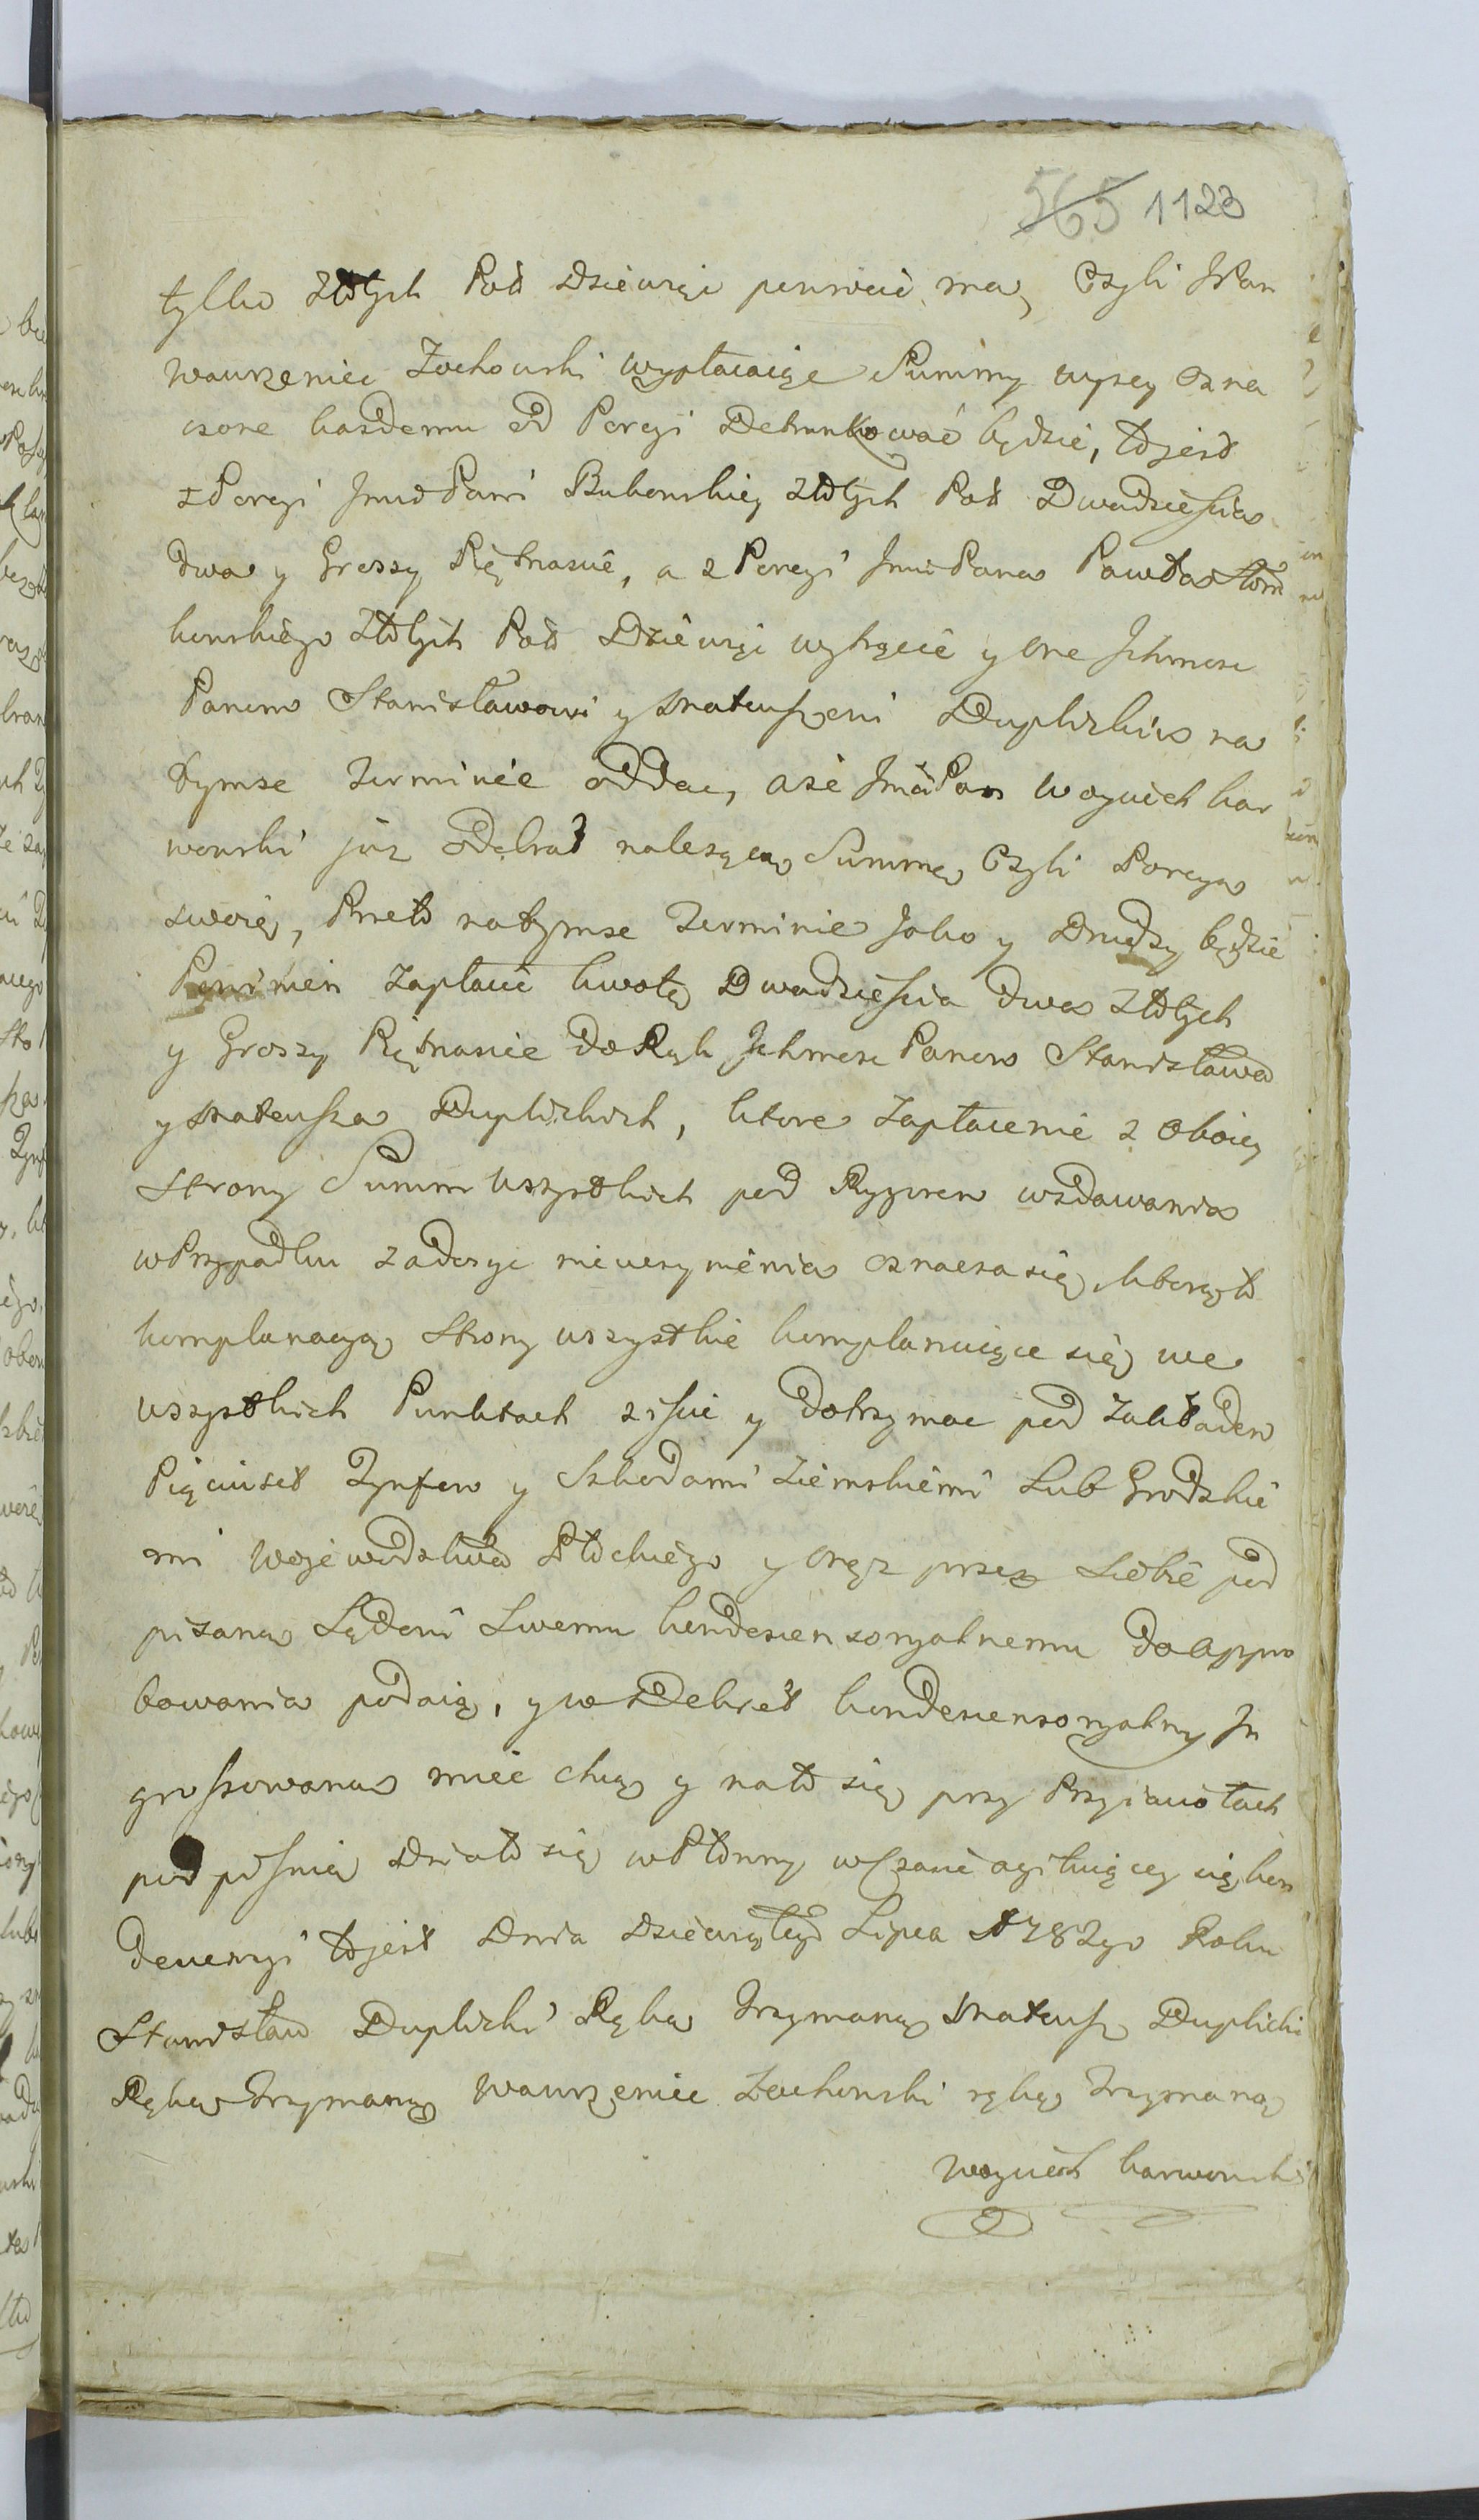 565 1123
tylko Złłtych Pol Dziewięć powrócić ma, Czyli JPan
Wawrzeniec Zochowski wypłacaiąc Summy wyzey ozna
czone kazdemu od Porcyi Detrunkować będzie, to jest
z Porcyi Jmć Pani Bukowskiey Złłtych Pol Dwadziescia
dwa y Groszy Piętnascie, a z Porcyi Jmć Pana Pawła
kowskiego Złłtych Pol Dziewięć wytrącić y one Ichmosc
Panom Stanisławowi y Mateuszowi Duplickim na
tymze Terminie oddac, a ze Jmć Pan Woyciech Kar
wowski juz odebrał nalezącą Summę Czyli Porcyą
swoię, Przeto na tymze Terminie Jako y Drudzy będzie
Powinien zapłacic kwotę Dwadziescia dwa Złłtych
y Groszy Piętnascie do Rąk Ichmosc Panow Stanisława
y Mateusza Duplickich, ktore zapłacenie z oboiey
strony Summ wszystkich pod Rygorem wzdawania
w Przypadku zadosyc nieuczynienia oznacza się, ktorą to
komplanacyą strony wszystkie komplanuiące się we
wszystkich Punktach ziscic y dotrzymac pod Zakładem
Pięciuset Tynfow y Szkodami Ziemskiemi Lub Grodzkie
mi Wojewodztwa Płockiego y oraz przez Siebie pod
pisaną Sądowi Swemu kondescensoryalnemu do appro
bowania podaią, y w Dekret kondescensoryalny In
grossowaną miec chcą y na to się przy Przyiaciołach
podpisuią Działo się w Płonny w Czasie agituiącey się kon
descensyi to jest Dnia Dziewiątego Lipca 1782go Roku
Stanisław Duplicki Ręką Trzymaną Mateusz Duplicki
Ręką Trzymaną Wawrzeniec Zochowski ręką Trzymaną
Woyciech Karwowski